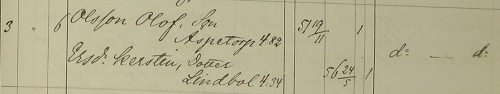 3 " 6 Olsson Olof, Son
Aspetorp 4.82 51 19/11 1
Ersdr Kerstin, Dotter d: — d:
Lindbol 4.34 56 24/5 1